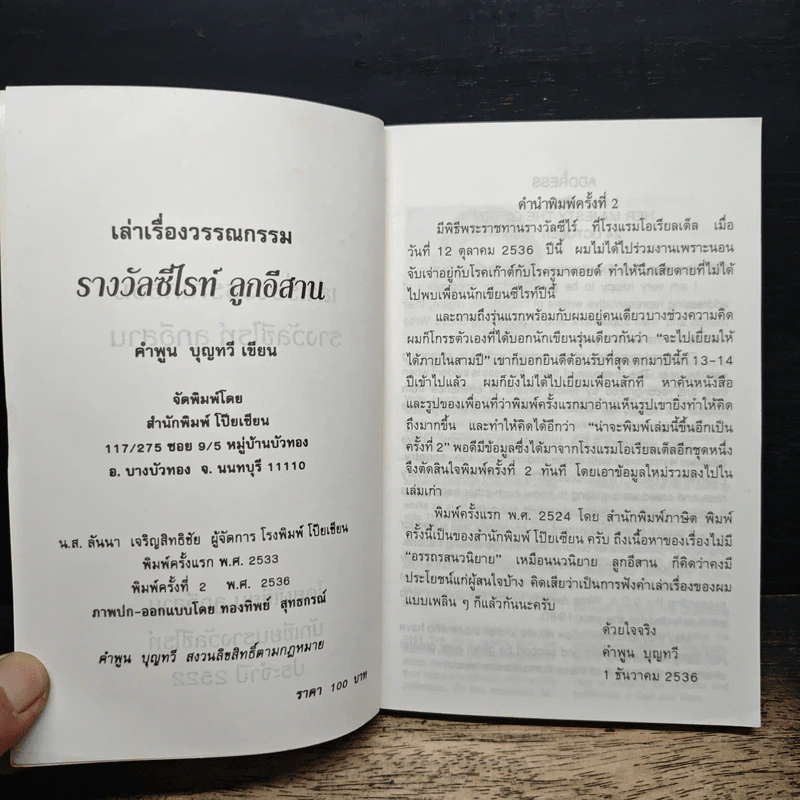 เล่าเรื่องวรรณกรรม
รางวัลซีไรท์ ลูกอีสาน
คำพูน บุญทวี เขียน
จัดพิมพ์โดย
สำนักพิมพ์ โป๊ยเซียน
117/275 ซอย 9/5 หมู่บ้านบัวทอง
อ. บางบัวทอง จ. นนทบุรี 11110
น.ส. ลันนา เจริญสิทธิชัย ผู้จัดการ โรงพิมพ์ โป๊ยเซียน
พิมพ์ครั้งแรก พ.ศ. 2533
พิมพ์ครั้งที่ 2 พ.ศ. 2536
ภาพปก-ออกแบบโดย ทองทิพย์ สุทธกรณ์
คำพูน บุญทวี สงวนลิขสิทธิ์ตามกฎหมาย
ราคา 100 บาท
คำนำพิมพ์ครั้งที่ 2
มีพิธีพระราชทานรางวัลซีไร้ ที่โรงแรมโอเรียลเต็ล เมื่อ
วันที่ 12 ตุลาคม 2536 ปีนี้ ผมไม่ได้ไปร่วมงานเพราะนอน
จับเจ่าอยู่กับโรคเก๊าต์กับโรครูมาตอยด์ ทำให้นึกเสียดายที่ไม่ได้
ไปพบเพื่อนนักเขียนซีไรท์ปีนี้
และถามถึงรุ่นแรกพร้อมกับผมอยู่คนเดียวบางช่วงความคิด
ผมก็โกรธตัวเองที่ได้บอกนักเขียนรุ่นเดียวกันว่า "จะไปเยี่ยมให้
ได้ภายในสามปี" เขาก็บอกยินดีต้อนรับที่สุด ตกมาปีนี้ก็ 13-14
ปีเข้าไปแล้ว ผมก็ยังไม่ได้ไปเยี่ยมเพื่อนสักที หาค้นหนังสือ
และรูปของเพื่อนที่ว่าพิมพ์ครั้งแรกมาอ่านเห็นรูปเขายิ่งทำให้คิด
ถึงมากขึ้น และทำให้คิดได้อีกว่า "น่าจะพิมพ์เล่มนี้ขึ้นอีกเป็น
ครั้งที่ 2" พอดีมีข้อมูลซึ่งได้มาจากโรงแรมโอเรียลเต็ลอีกชุดหนึ่ง
จึงตัดสินใจพิมพ์ครั้งที่ 2 ทันที โดยเอาข้อมูลใหม่รวมลงไปใน
เล่มเก่า
พิมพ์ครั้งแรก พ.ศ. 2524 โดย สำนักพิมพ์ภาษิต พิมพ์
ครั้งนี้เป็นของสำนักพิมพ์ โป๊ยเซียน ครับ ถึงเนื้อหาของเรื่องไม่มี
"อรรถรสนวนิยาย" เหมือนนวนิยาย ลูกอีสาน ก็คิดว่าคงมี
ประโยชน์แก่ผู้สนใจบ้าง คิดเสียว่าเป็นการฟังคำเล่าเรื่องของผม
แบบเพลิน ๆ ก็แล้วกันนะครับ
ด้วยใจจริง
คำพูน บุญทวี
1 ธันวาคม 2536